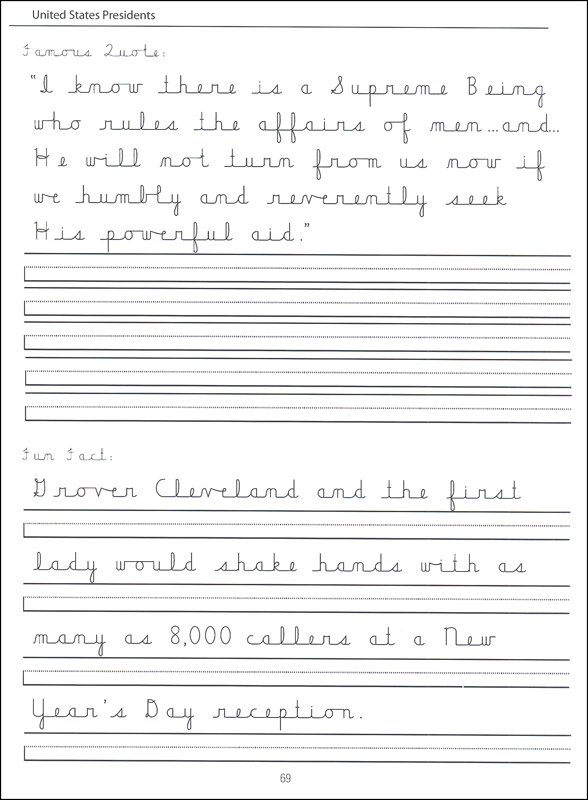 United States Presidents
Famous Quote:
"I know there is a Supreme Being
who rules the affairs of men...and...
He will not turn from us now if
we humbly and reverently seek
His powerful aid."
Fun Fact:
Grover Cleveland and the first
lady would shake hands with as
many as 8,000 callers at a New
Year's Day reception.
69